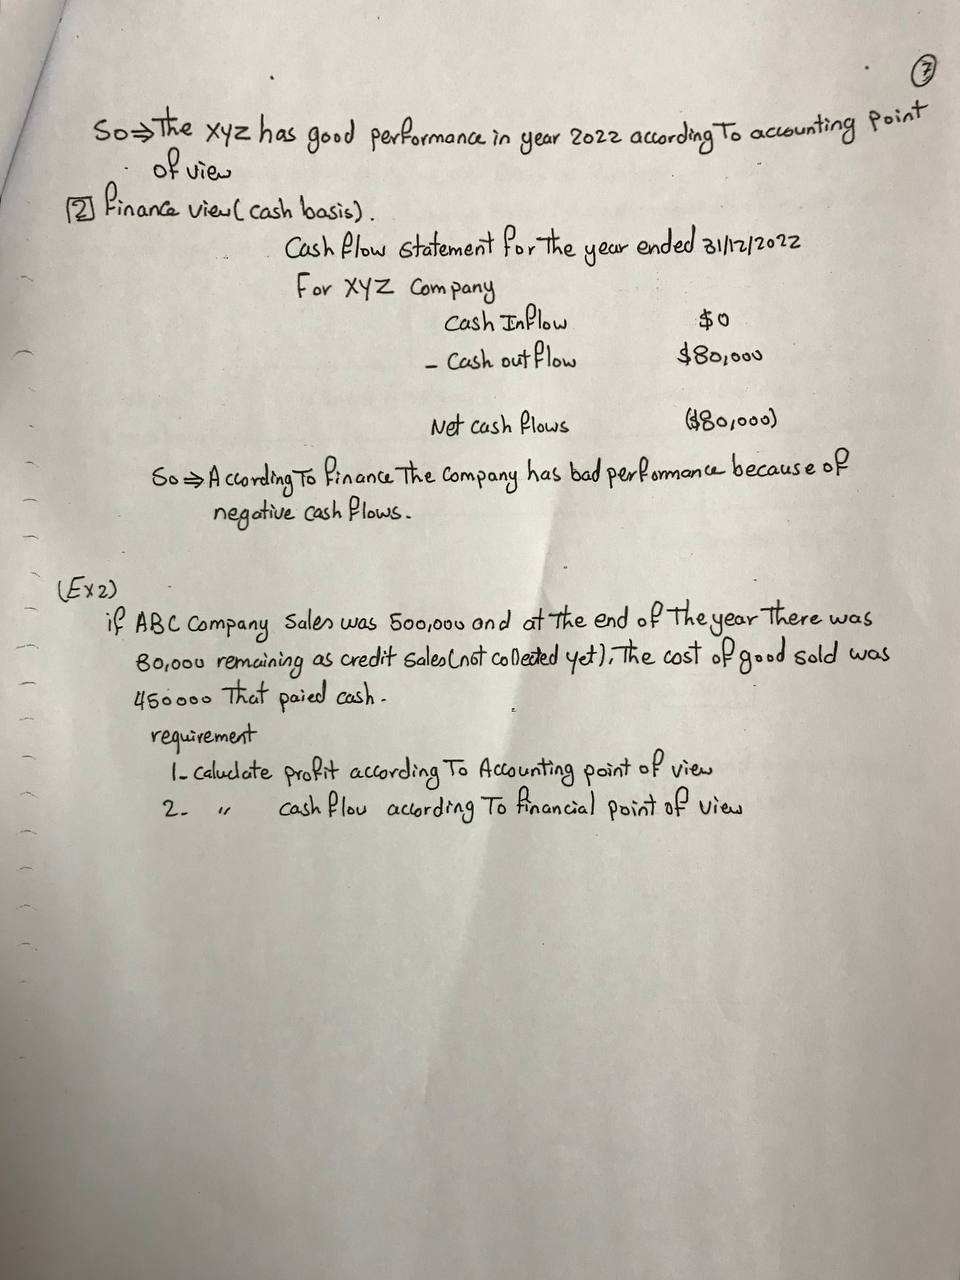 7
So⇒The XYZ has good performance in year 2022 according To accounting point
of view
[2] finance view (cash basis).
Cash flow statement for The year ended 31/12/2022
For XYZ Company
Cash Inflow $0
- Cash outflow $80,000
Net cash flows ($80,000)
So⇒According To finance The Company has bad performance because of
negative cash flows.
(Ex2)
if ABC Company sales was 500,000 and at The end of The year There was
80,000 remaining as credit sales (not collected yet), The cost of good sold was
450000 That paied cash.
requirement
1- caluclate profit according To Accounting point of view
2- " cash flow according To financial point of view